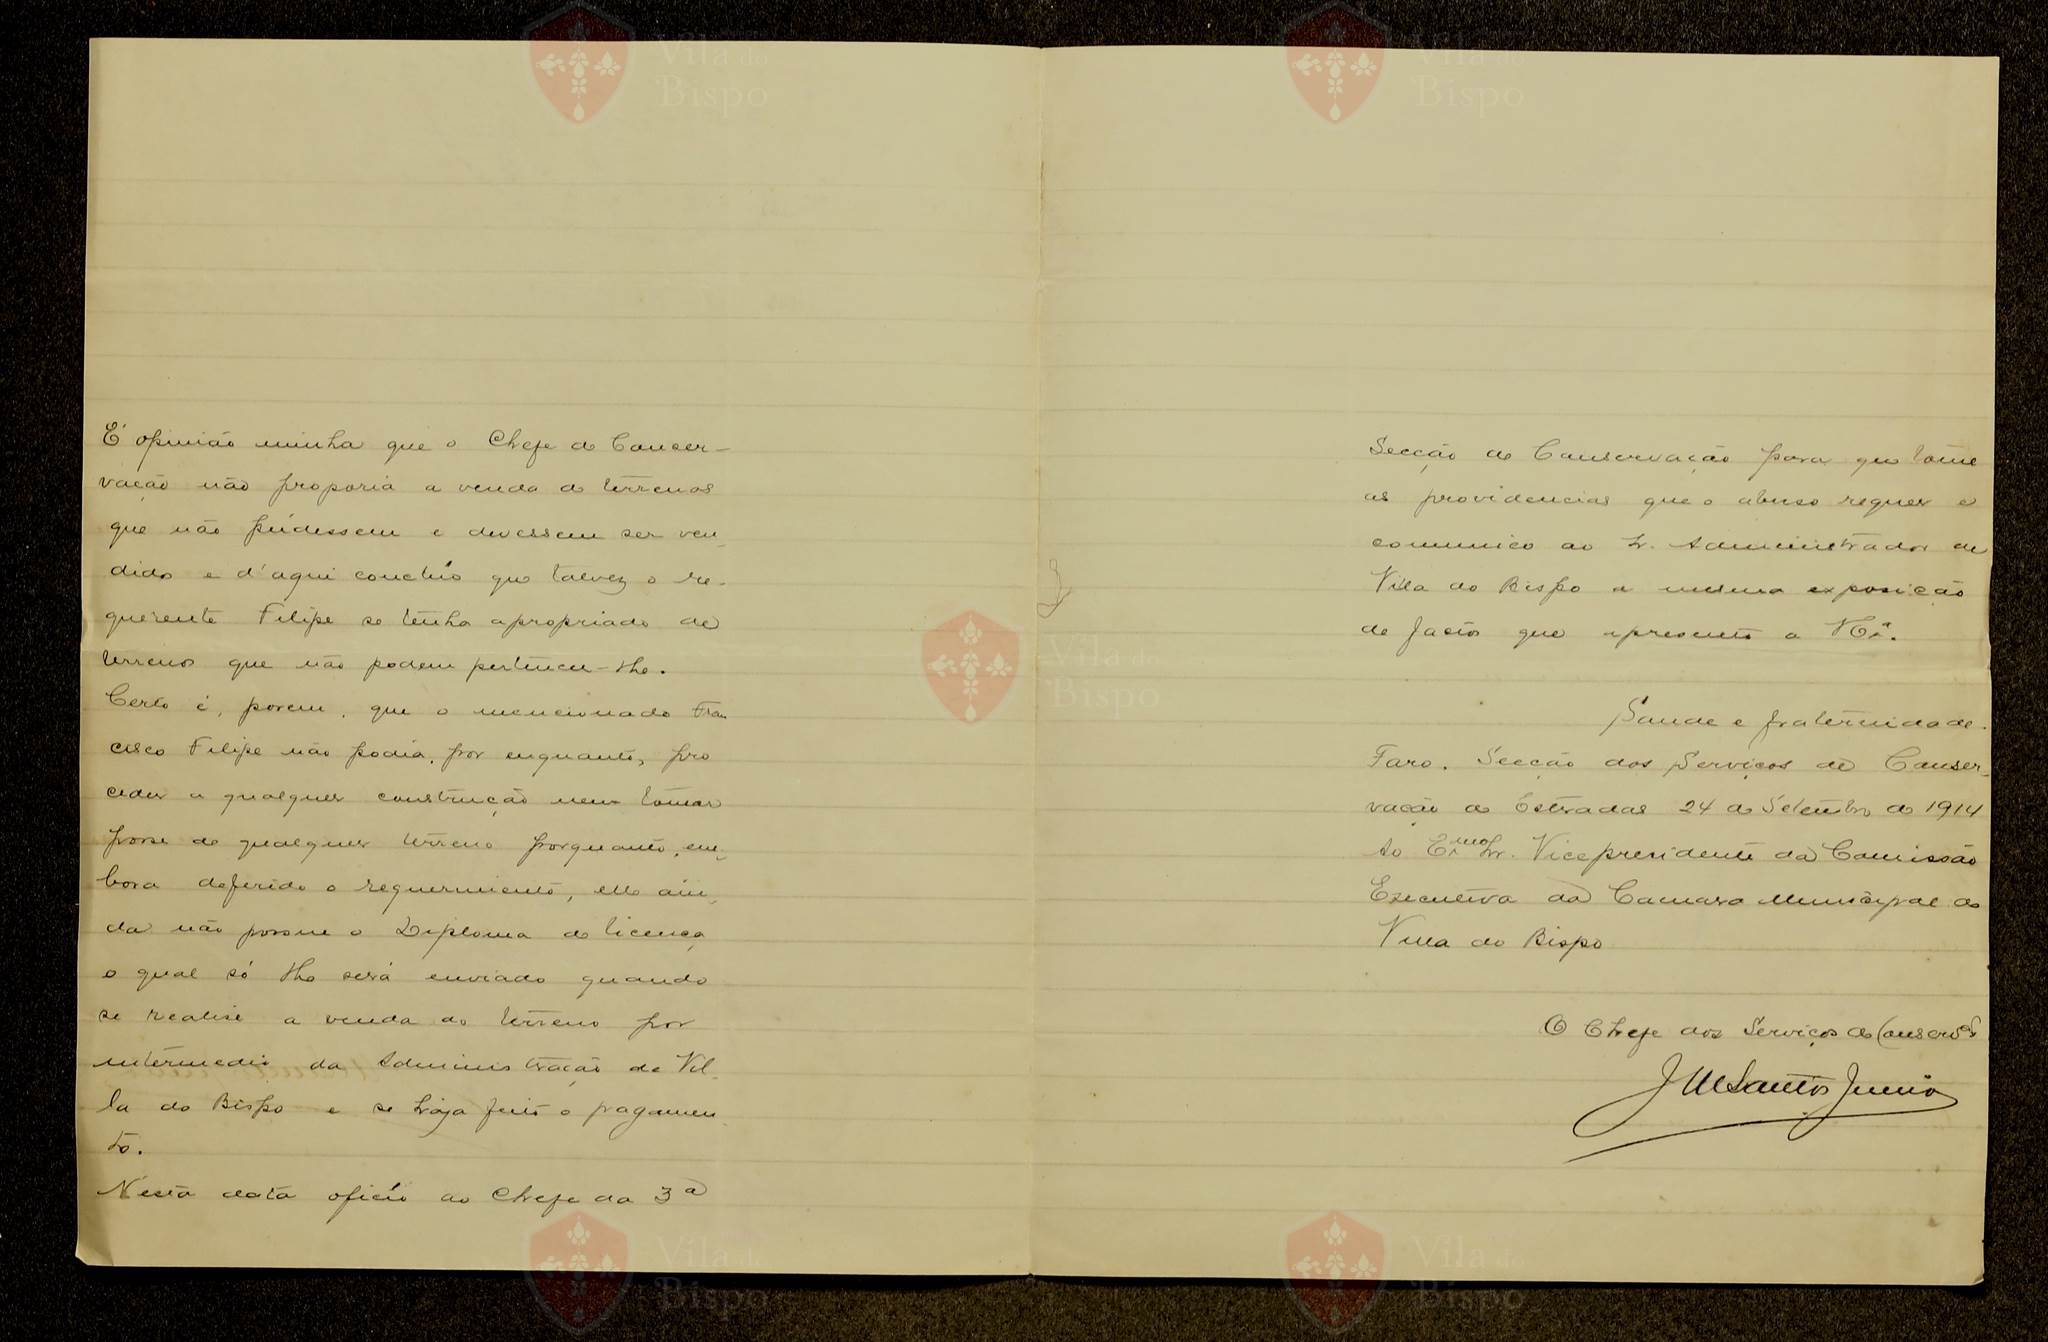 É opinião minha que o Chefe de Conser-
vação não proporia a venda de terrenos
que não pudessem e devessem ser ven-
dido e d'aqui concluo que talvez o re-
querente Filipe se tenha apropriado de
terrenos que não podem pertencer-lhe.
Certo é, porem, que o mencionado Fran
cisco Filipe não podia, por enquanto, pro
ceder a qualquer construcção nem tomar
posse de qualquer terreno porquanto, em-
bora deferido o requerimento, elle ain-
da não possue o Diploma de licença
o qual só lhe será enviado quando
se realise a venda do terreno por
intermedio da Administração de Vil-
la do Bispo e se haja feito o pagamen-
to.
Nesta data oficio ao Chefe da 3ª
Secção de Conservação para que tome
as providencias que o abuso requer e
comunico ao Sr. Administrador de
Vila do Bispo a mesma exposição
de factos que apresento a V. Exª.
Saude e fraternidade.
Faro. Secção dos Serviços de Conser-
vação de Estradas 24 de Setembro de 1914
Ao Exmo Sr. Vicepresidente da Comissão
Executiva da Camara Municipal de
Villa do Bispo
O Chefe dos Serviços de Conservão
J M Santos Junior
Vila do
Bispo
Vila do
Bispo
Vila do
Bispo
Vila do
Bispo
Vila do
Bispo